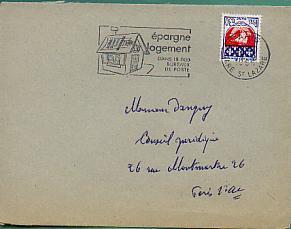 épargne
logement
DANS 18 000
BUREAUX
DE POSTE
GARE ST LAZARE
Monsieur Danguy
Conseil juridique
26 rue Montmartre 26
Paris Vᵉ